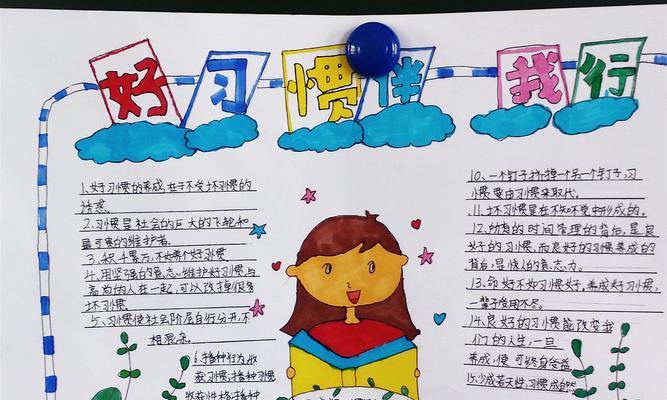 好习惯伴我行
1、好习惯的养成,在于不受坏习惯的
诱惑。
2、习惯是社会的巨大的飞轮和
最可贵的维护者。
3、积千累万,不如养个好习惯
4、用坚强的意志维护好习惯,与
高尚的人在一起,可以改掉很多
坏习惯。
5、习惯使社会阶层自行分开,不
相混杂。
6、播种行为收
获习惯;播种习惯
收获性格;播种
10、一个钉子挤掉另一个钉子,习
惯要由习惯来取代。
11、坏习惯是在不知不觉中形成的。
12、所有的时间管理的背后,是良
好的习惯,而良好的习惯养成的
背后,是惊人的意志力。
13、命好不如习惯好,养成好习惯,
一辈子受用不尽。
14、良好的习惯能改变我
们的人生,一旦
养成,便可终身受益
15、少成若天性,习惯成自然